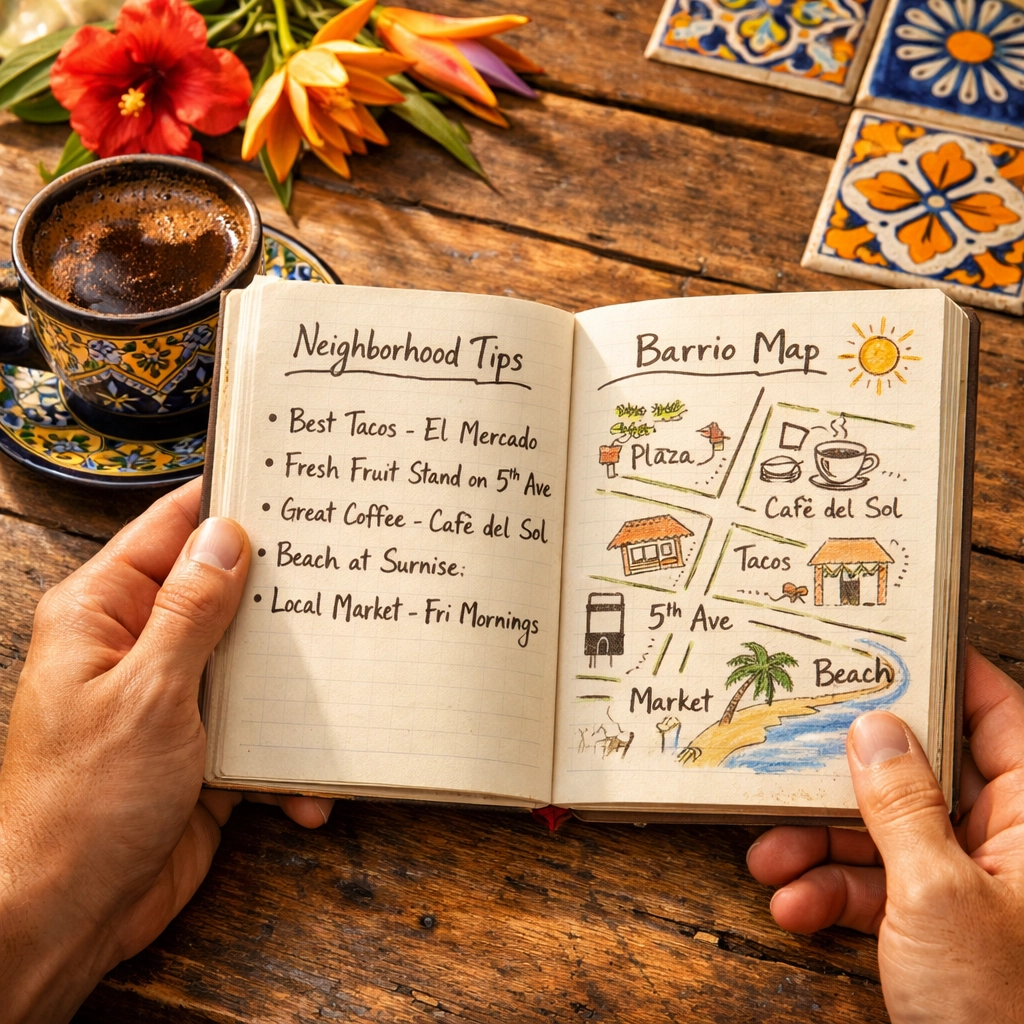 Neighborhood Tips
• Best Tacos - El Mercado
• Fresh Fruit Stand on 5th Ave
• Great Coffee - Cafè del Sol
• Beach at Surnise:
• Local Market - Fri Mornings
Barrio Map
Plaza
Cafè del Sol
Tacos
5th Ave
Beach
Market